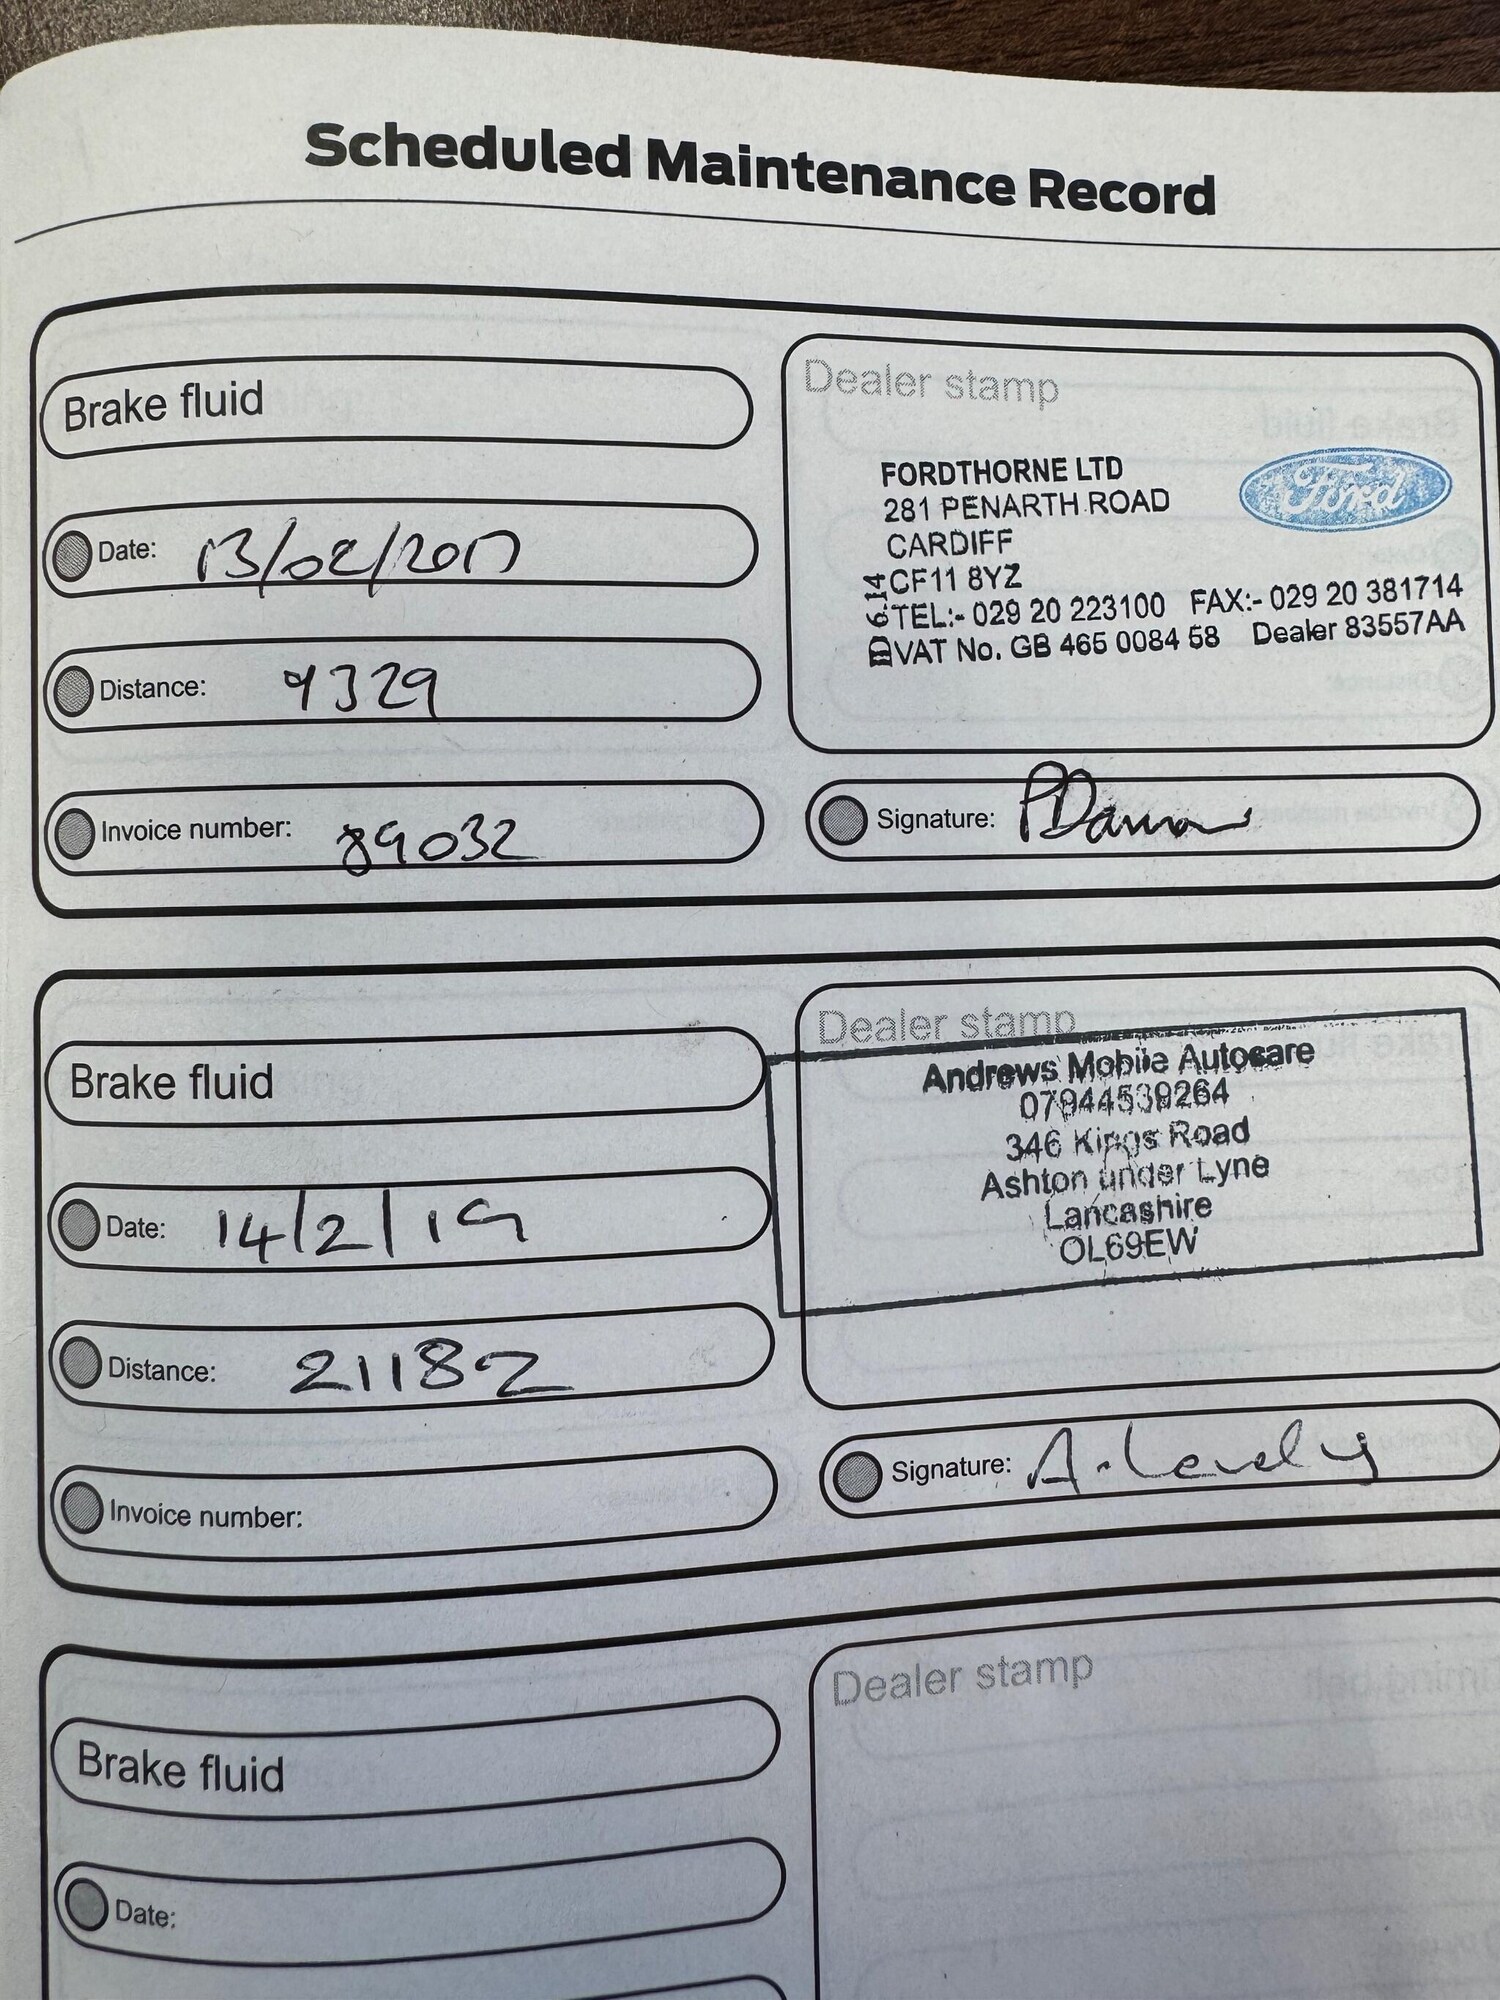 Scheduled Maintenance Record
Brake fluid
Date: 13/02/2017
Distance: 9329
Invoice number: 89032
Dealer stamp
FORDTHORNE LTD
281 PENARTH ROAD
CARDIFF
CF11 8YZ
TEL:- 029 20 223100 FAX:- 029 20 381714
VAT No. GB 465 0084 58 Dealer 83557AA
Ford
Signature:
Brake fluid
Date: 14/2/19
Distance: 21182
Invoice number:
Dealer stamp
Andrews Mobile Autocare
07944539264
346 Kings Road
Ashton under Lyne
Lancashire
OL69EW
Signature:
Brake fluid
Date:
Dealer stamp